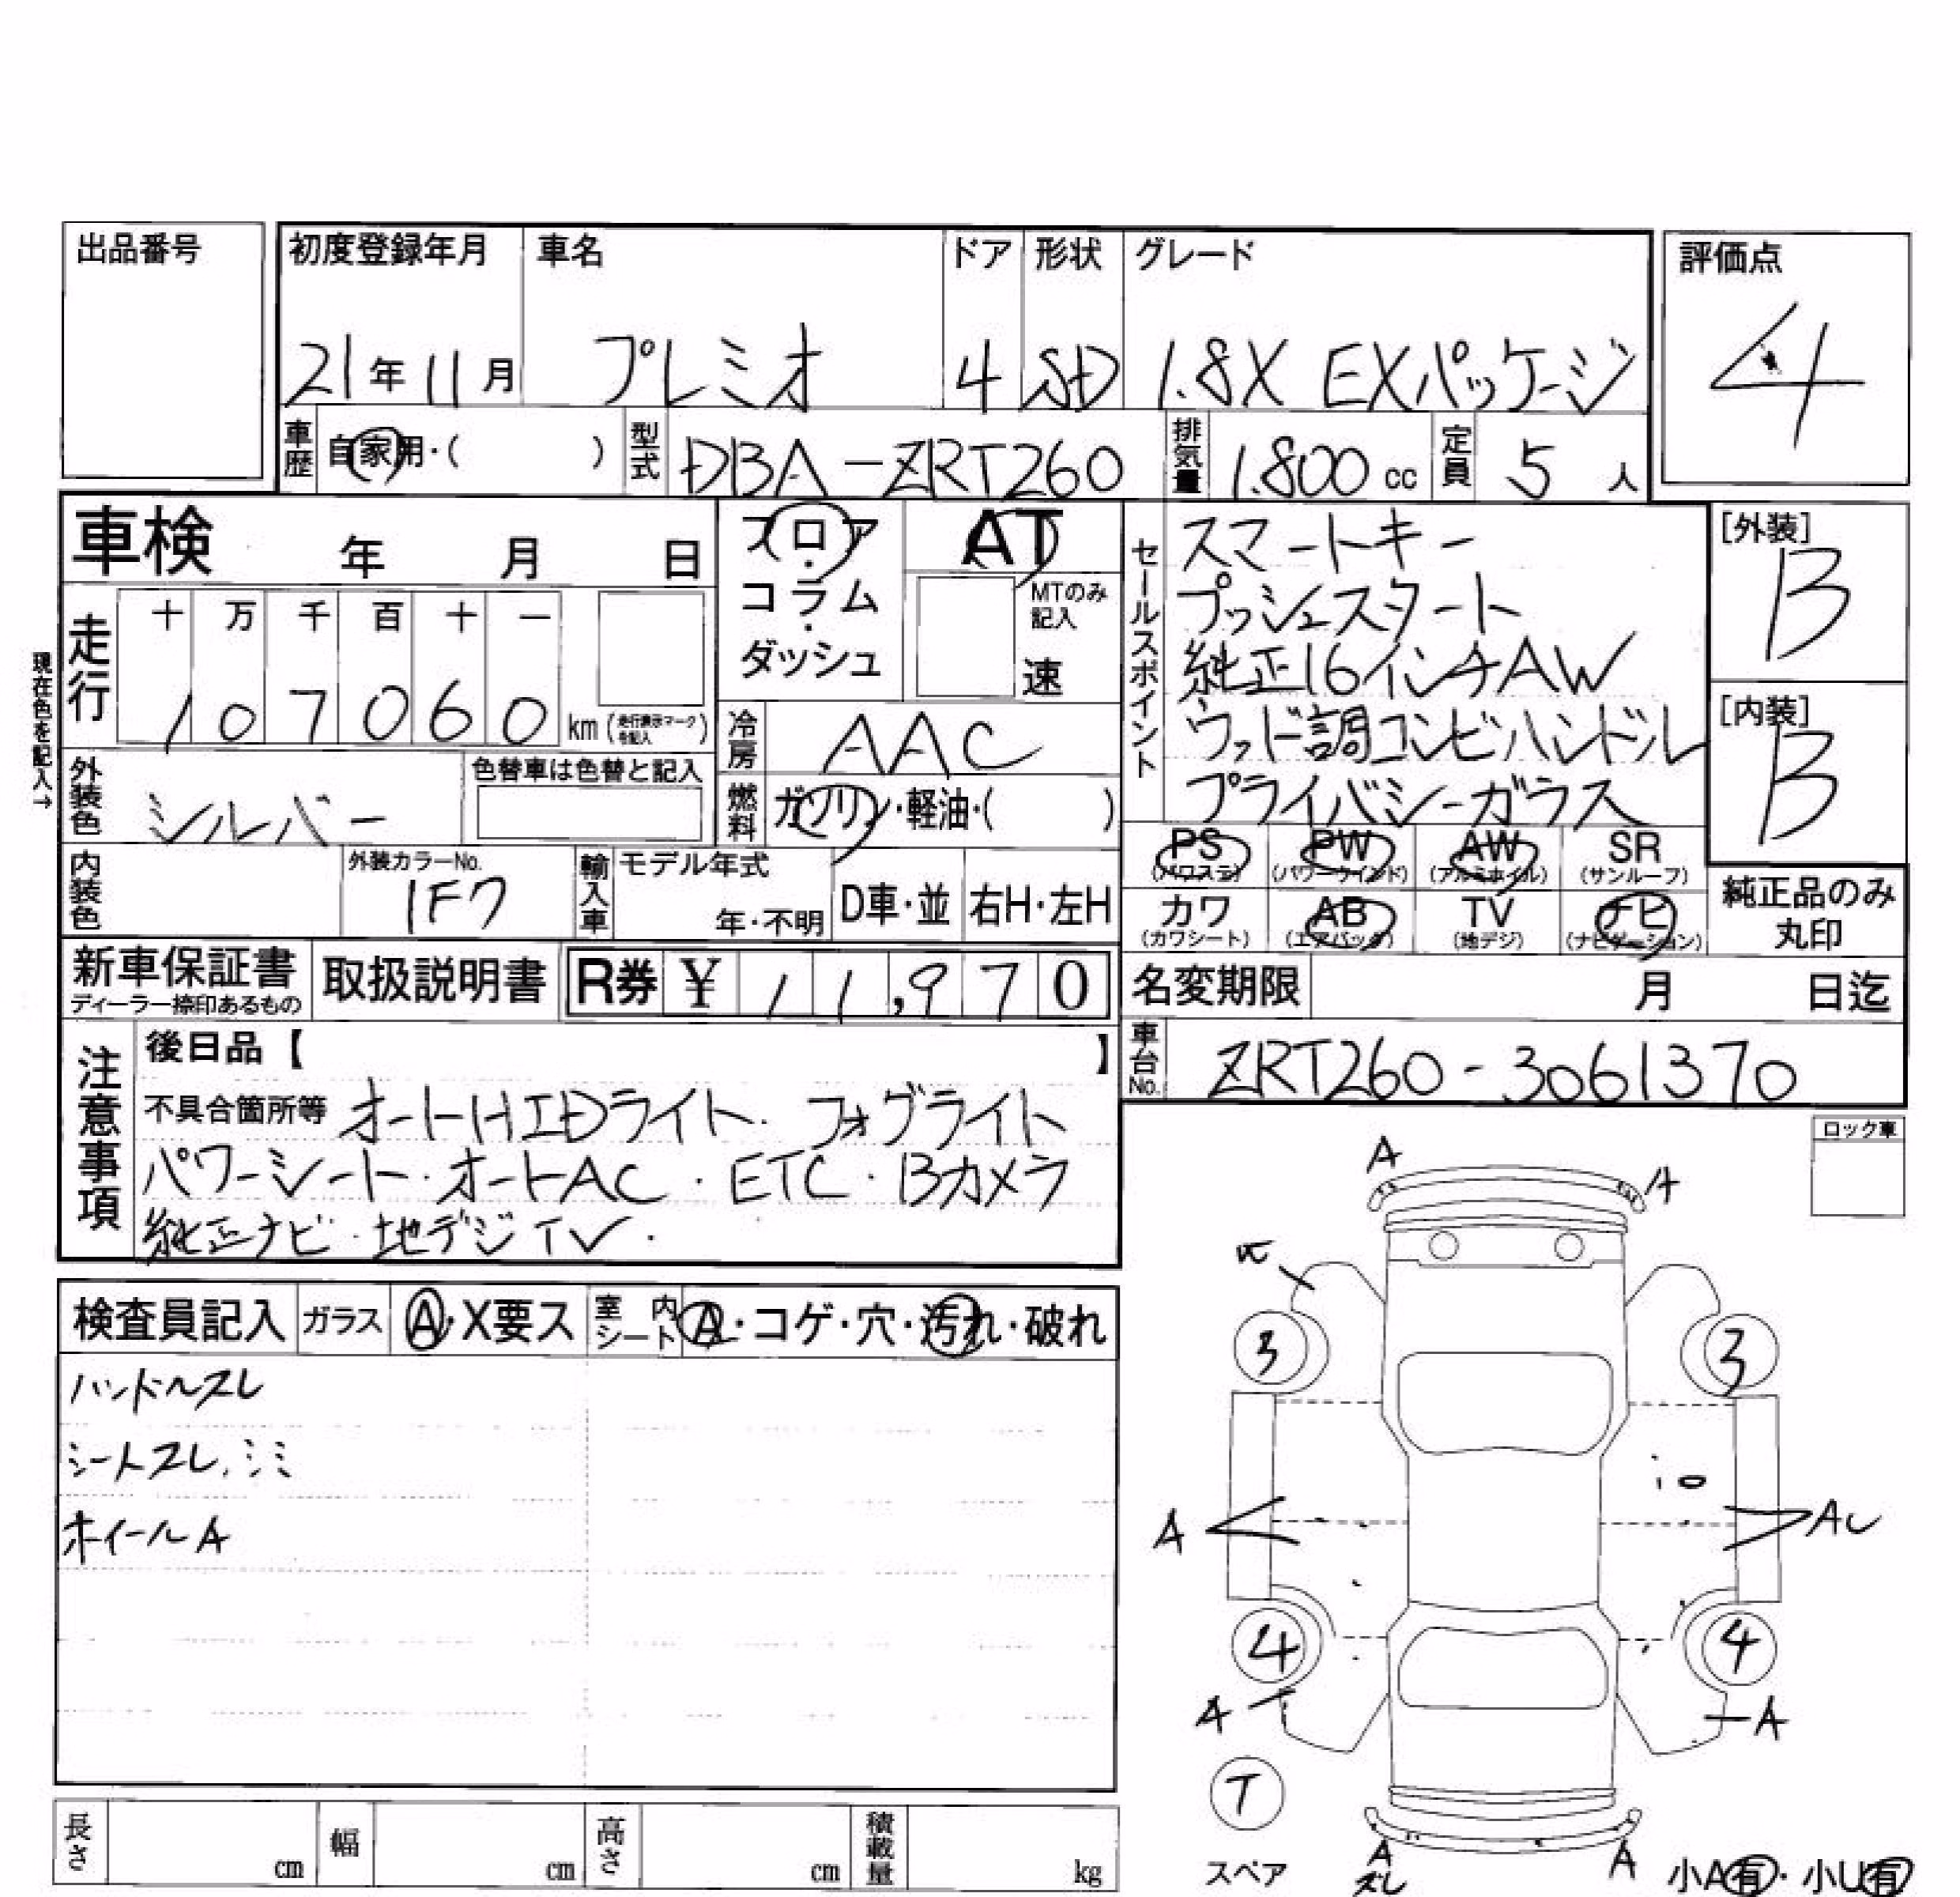 出品番号
初度登録年月 車名 ドア 形状 グレード 評価点
21年11月 プレミオ 4 SD 1.8X EXパッケージ 4
車歴 自家用・( ) 型式 DBA-ZRT260 排気量 1.800 cc 定員 5 人
車検 年 月 日
フロア・コラム・ダッシュ
AT
MTのみ記入
速
セールスポイント
スマートキー
プッシュスタート
純正16インチAW
ウッド調コンビハンドル
プライバシーガラス
[外装] B
[内装] B
現在色を記入→
走行 十 万 千 百 十 一
107060 km (走行表示マークを記入)
冷房 AAC
外装色 シルバー 色替車は色替と記入
燃料 ガソリン・軽油・( )
内装色 外装カラーNo. 1F7 輸入車 モデル年式 年・不明 D車・並 右H・左H
PS (パワステ) PW (パワーウインド) AW (アルミホイル) SR (サンルーフ)
カワ (カワシート) AB (エアバッグ) TV (地デジ) ナビ (ナビゲーション)
純正品のみ丸印
新車保証書 ディーラー捺印あるもの 取扱説明書 R券 ¥ 11,970
名変期限 月 日迄
車台No. ZRT260-3061370
注意事項
後日品【 】
不具合箇所等 オートHIDライト・フォグライト
パワーシート・オートAC・ETC・Bカメラ
純正ナビ・地デジTV.
ロック車
検査員記入 ガラス A・X要ス 室内シート A・コゲ・穴・汚れ・破れ
ハンドルスレ
シートスレ、シミ
ホイールA
A A
3 3
A AU
4 4
A A
T
スペア
A スレ A
小A有・小U有
長さ cm 幅 cm 高さ cm 積載量 kg